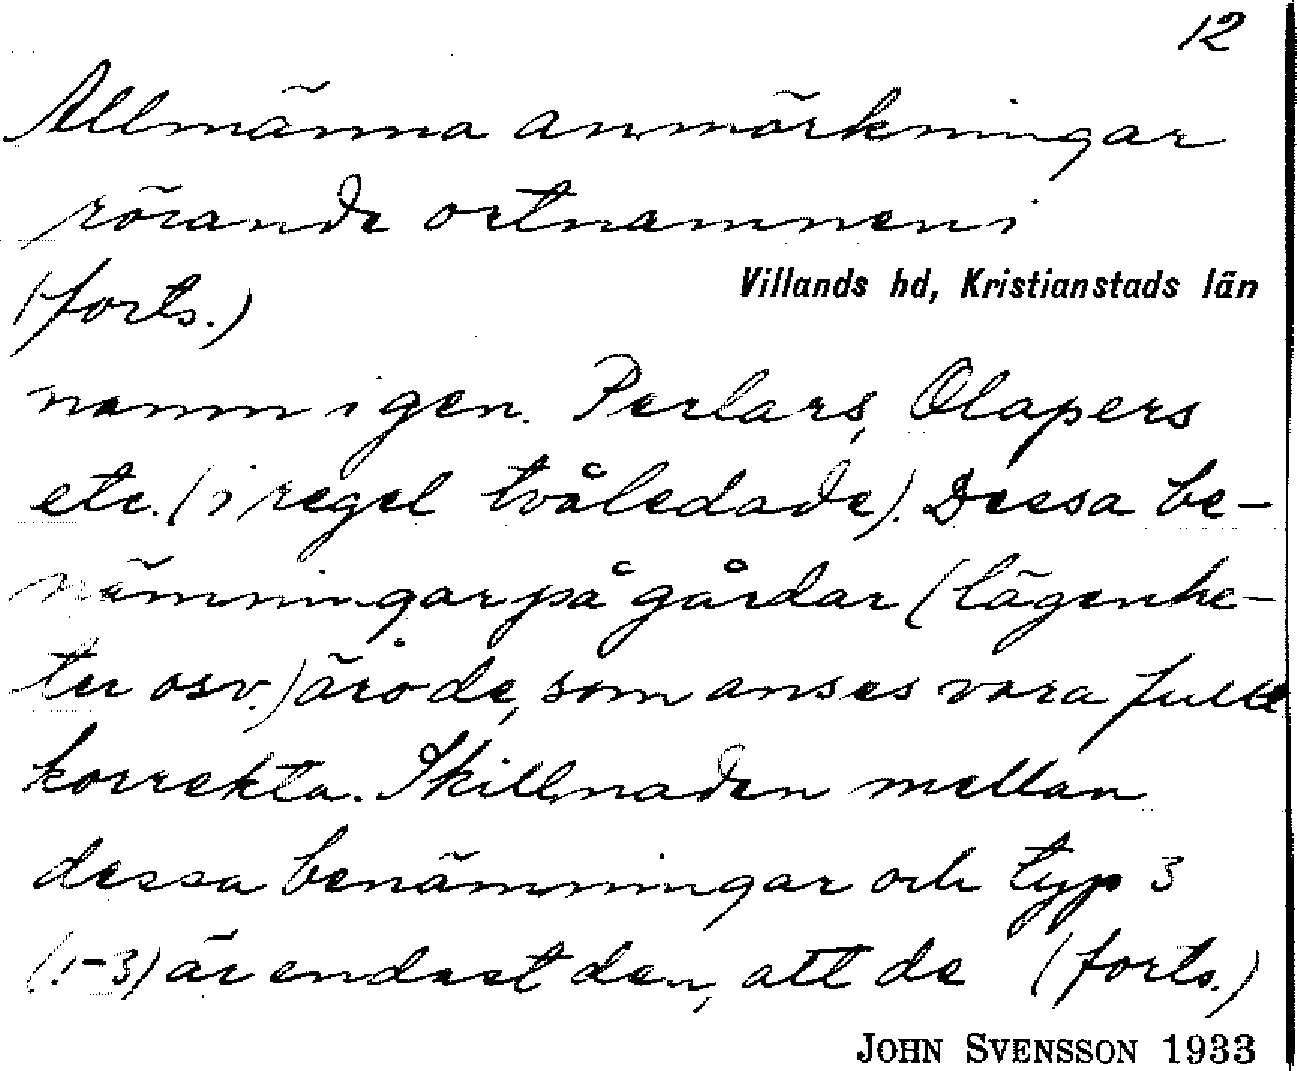 12
Allmänna anmärkningar
rörande ortnamnen i
(forts.)
Villands hd, Kristianstads län
namn i gen. Perlars, Olapers
etc. (i regel tvåledade). Dessa be-
nämningar på gårdar (lägenhe-
ter osv.) äro de, som anses vara fullt
korrekta. Skillnaden mellan
dessa benämningar och typ 3
(1-3) är endast den, att de (forts.)
JOHN SVENSSON 1933